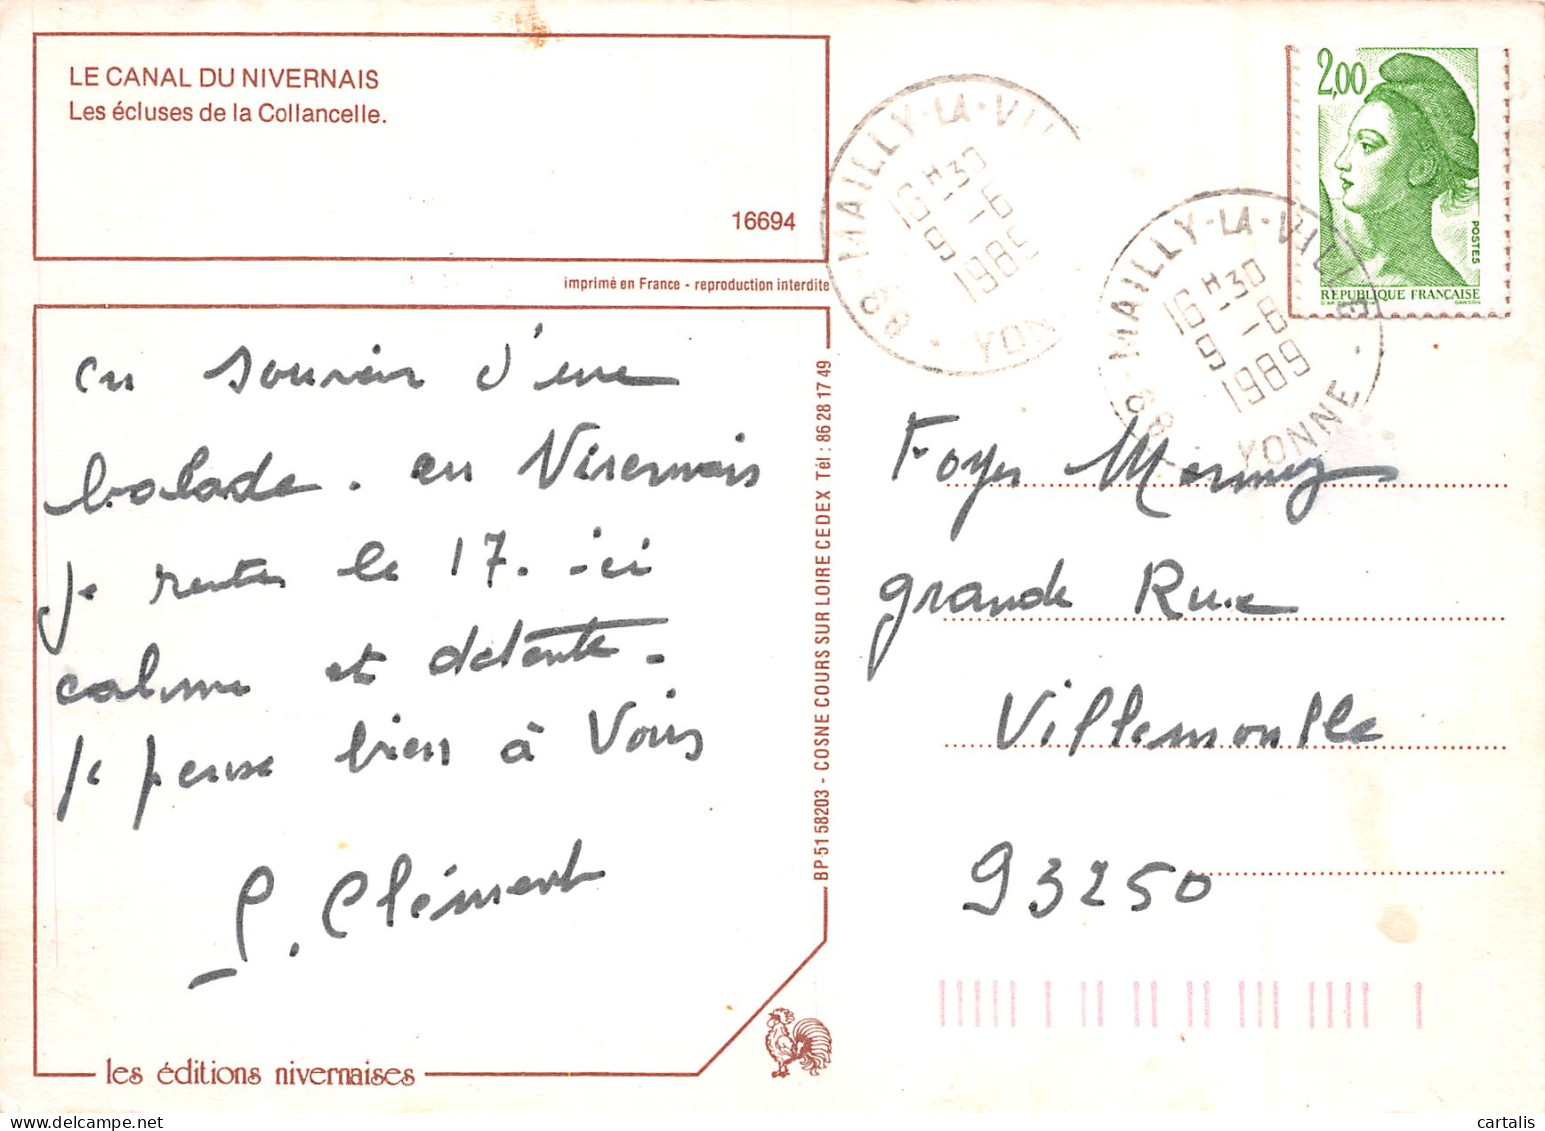 LE CANAL DU NIVERNAIS
Les écluses de la Collancelle.
16694
imprimé en France - reproduction interdite
en souvenir d'une
balade. en Nivernais
je rentre le 17. ici
calme et détente.
je pense bien à Vous
C. Clément
les éditions nivernaises
BP 51 58203 - COSNE COURS SUR LOIRE CEDEX Tél : 86 28 17 49
89-MAILLY-LA-VIL
16H30
9-6
1989
YON
89-MAILLY-LA-VILLE
16H30
9-6
1989
YONNE
2,00
POSTES
REPUBLIQUE FRANÇAISE
GANDON
Foyer Mermoz
grande Rue
Villemomble
93250
cartalis